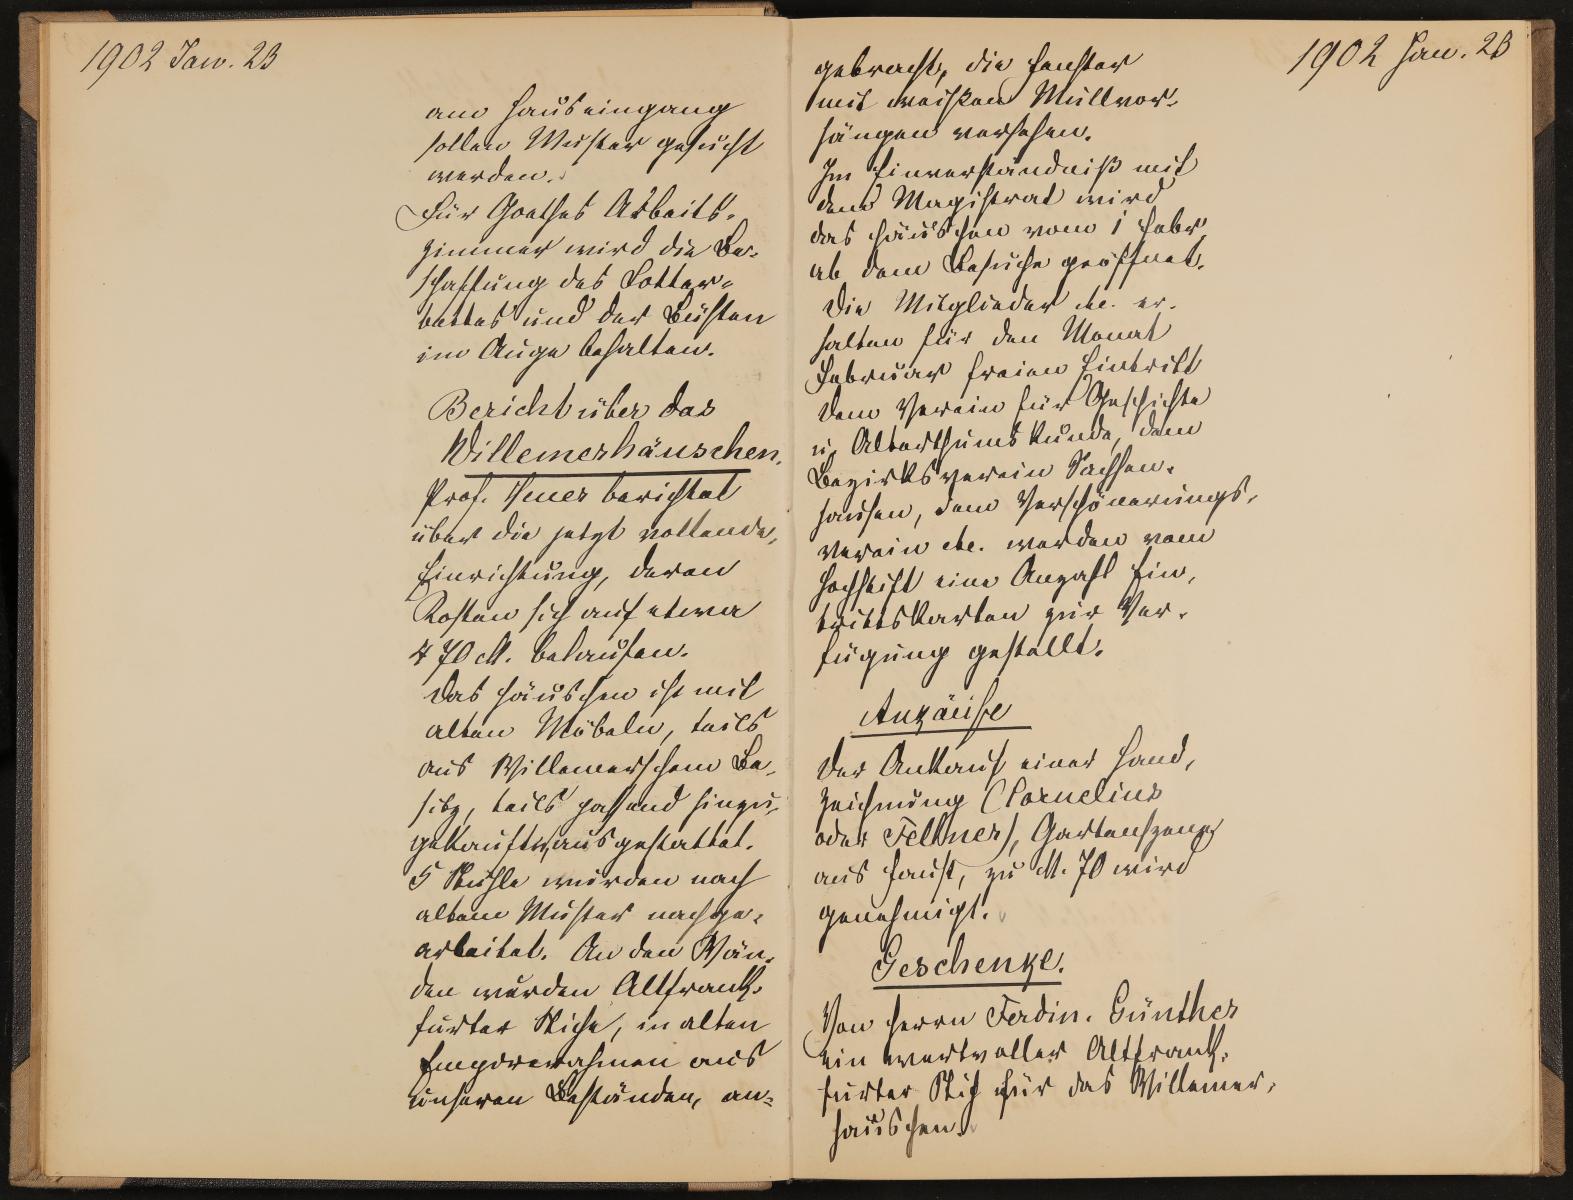 1902 Jan. 23
am Hauseingang
sollen Muster gesucht
werden.
Für Goethes Arbeits-
zimmer wird die Be-
schaffung des Lotter-
bettes und der Büsten
im Auge behalten.
Bericht über das
Willemerhäuschen.
Prof. Heuer berichtet
über die jetzt vollende,
Einrichtung, deren
Kosten sich auf etwa
470 M. belaufen.
Das Häuschen ist mit
alten Möbeln, teils
aus Willemerschem Be-
sitz, teils passend hinzu-
gekauft, ausgestattet.
5 Stühle wurden nach
altem Muster nachge-
arbeitet. An den Wän-
den wurden Altfrank-
furter Stiche, in alten
Empirerahmen aus
unseren Beständen, an-
1902 Jan. 23
gebracht, die Fenster
mit weißen Mullvor-
hängen versehen.
Im Einverständniß mit
dem Magistrat wird
das Häuschen vom 1 Febr.
ab dem Besuche geöffnet.
Die Mitglieder etc. er-
halten für den Monat
Februar freien Eintritt
Dem Verein für Geschichte
u. Alterthumskunde, dem
Bezirksverein Sachsen-
hausen, dem Verschönerungs-
verein etc. werden vom
Hochstift eine Anzahl Ein-
trittskarten zur Ver-
fügung gestellt.
Ankäufe
Der Ankauf einer Hand-
zeichnung (Cornelius
oder Fellner), Gartenszene
aus Faust, zu M. 70 wird
genehmigt.
Geschenke.
Von Herrn Ferdin. Günther
ein wertvoller Altfrank-
furter Stich für das Willemer-
häuschen.